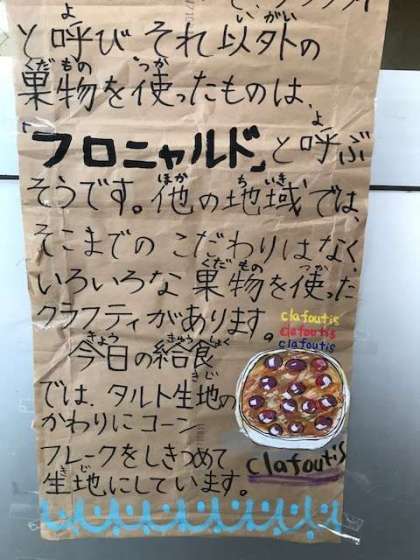 と呼び それ以外の
果物を使ったものは、
「フロニャルド」と呼ぶ
そうです。他の地域では、
そこまでの こだわりはなく、
いろいろな 果物を使った
クラフティがあります。
今日の給食
では、タルト生地の
かわりにコーン
フレークをしきつめて
生地にしています。
clafoutis
clafoutis
clafoutis
clafoutis